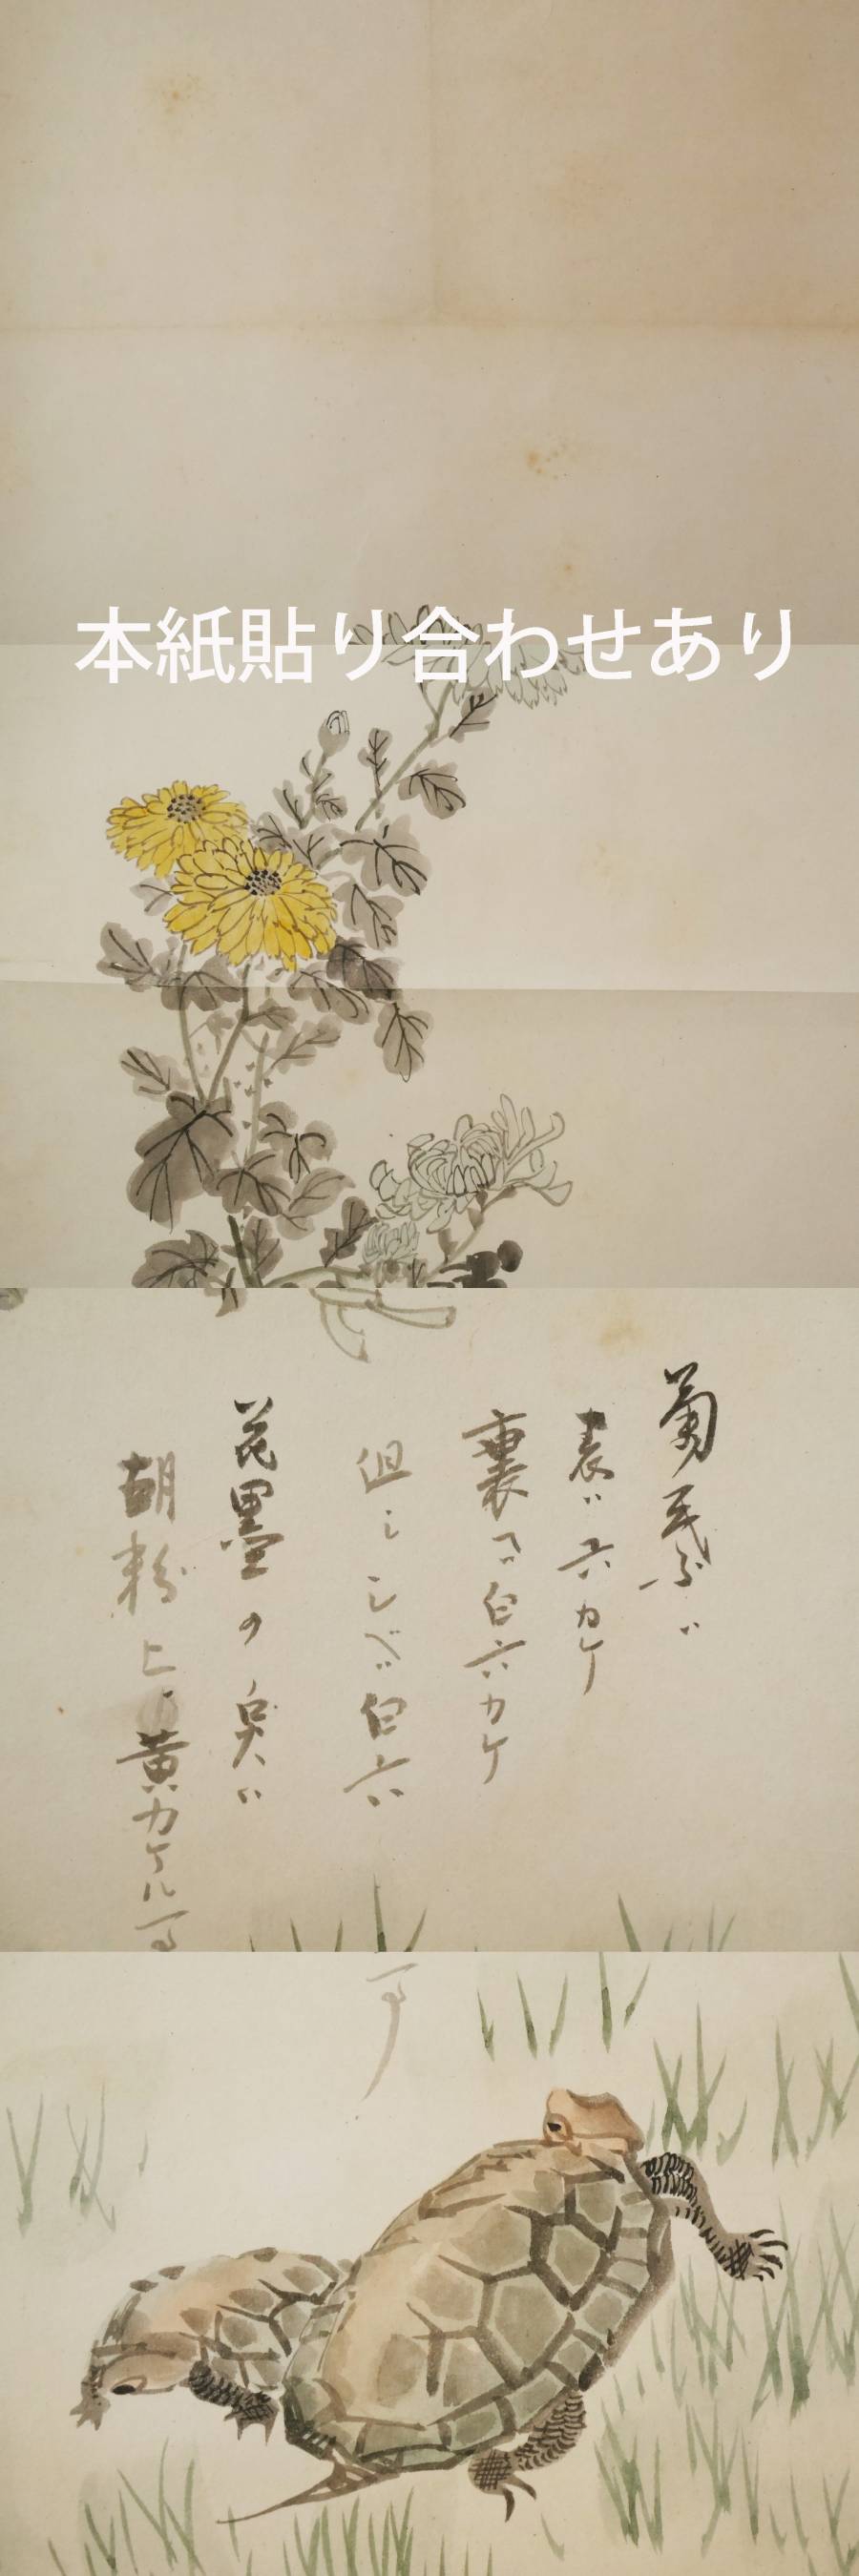 本紙貼り合わせあり
菊葉ハ
表ハ六カケ
裏ハ白六カケ
但シシベハ白六ハ
花墨ノ具ハ
胡粉上ハ黄カケル